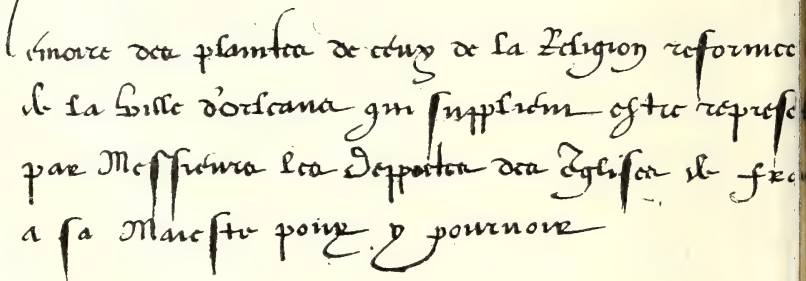 emoire des plaintes de ceux de la Religion reformee
de la ville d'orleans qui supplient estre represe
par Messieurs les depputes des Eglises de fra
a sa Maieste pour y pourveoir